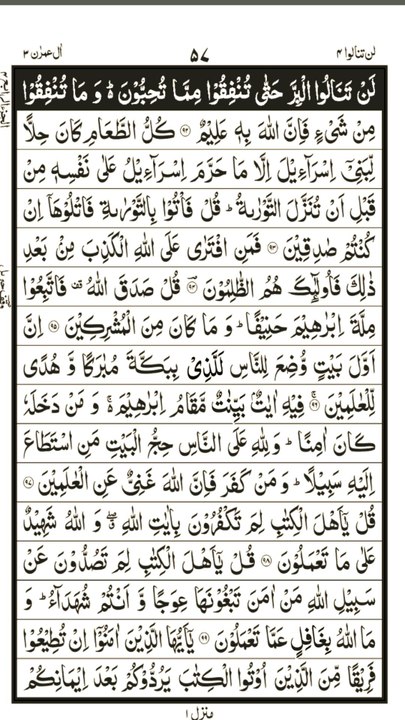 لن تنالوا ۴
۵۷
اٰل عمرٰن ۳
لَنْ تَنَالُوا الْبِرَّ حَتّٰى تُنْفِقُوْا مِمَّا تُحِبُّوْنَ ؕ وَ مَا تُنْفِقُوْا
مِنْ شَیْءٍ فَاِنَّ اللّٰهَ بِهٖ عَلِیْمٌ ﴿۹۲﴾ كُلُّ الطَّعَامِ كَانَ حِلًّا
لِّبَنِیْۤ اِسْرَآءِیْلَ اِلَّا مَا حَرَّمَ اِسْرَآءِیْلُ عَلٰى نَفْسِهٖ مِنْ
قَبْلِ اَنْ تُنَزَّلَ التَّوْرٰىةُ ؕ قُلْ فَاْتُوْا بِالتَّوْرٰىةِ فَاتْلُوْهَاۤ اِنْ
كُنْتُمْ صٰدِقِیْنَ ﴿۹۳﴾ فَمَنِ افْتَرٰى عَلَى اللّٰهِ الْكَذِبَ مِنْۢ بَعْدِ
ذٰلِكَ فَاُولٰٓىِٕكَ هُمُ الظّٰلِمُوْنَ ﴿۹۴﴾ قُلْ صَدَقَ اللّٰهُ ۫ فَاتَّبِعُوْا
مِلَّةَ اِبْرٰهِیْمَ حَنِیْفًا ؕ وَ مَا كَانَ مِنَ الْمُشْرِكِیْنَ ﴿۹۵﴾ اِنَّ
اَوَّلَ بَیْتٍ وُّضِعَ لِلنَّاسِ لَلَّذِیْ بِبَكَّةَ مُبٰرَكًا وَّ هُدًى
لِّلْعٰلَمِیْنَ ﴿۹۶﴾ فِیْهِ اٰیٰتٌۢ بَیِّنٰتٌ مَّقَامُ اِبْرٰهِیْمَ ۚ۬ وَ مَنْ دَخَلَهٗ
كَانَ اٰمِنًا ؕ وَ لِلّٰهِ عَلَى النَّاسِ حِجُّ الْبَیْتِ مَنِ اسْتَطَاعَ
اِلَیْهِ سَبِیْلًا ؕ وَ مَنْ كَفَرَ فَاِنَّ اللّٰهَ غَنِیٌّ عَنِ الْعٰلَمِیْنَ ﴿۹۷﴾
قُلْ یٰۤاَهْلَ الْكِتٰبِ لِمَ تَكْفُرُوْنَ بِاٰیٰتِ اللّٰهِ ۖۗ وَ اللّٰهُ شَهِیْدٌ
عَلٰى مَا تَعْمَلُوْنَ ﴿۹۸﴾ قُلْ یٰۤاَهْلَ الْكِتٰبِ لِمَ تَصُدُّوْنَ عَنْ
سَبِیْلِ اللّٰهِ مَنْ اٰمَنَ تَبْغُوْنَهَا عِوَجًا وَّ اَنْتُمْ شُهَدَآءُ ؕ وَ
مَا اللّٰهُ بِغَافِلٍ عَمَّا تَعْمَلُوْنَ ﴿۹۹﴾ یٰۤاَیُّهَا الَّذِیْنَ اٰمَنُوْۤا اِنْ تُطِیْعُوْا
فَرِیْقًا مِّنَ الَّذِیْنَ اُوْتُوا الْكِتٰبَ یَرُدُّوْكُمْ بَعْدَ اِیْمَانِكُمْ
منزل ۱